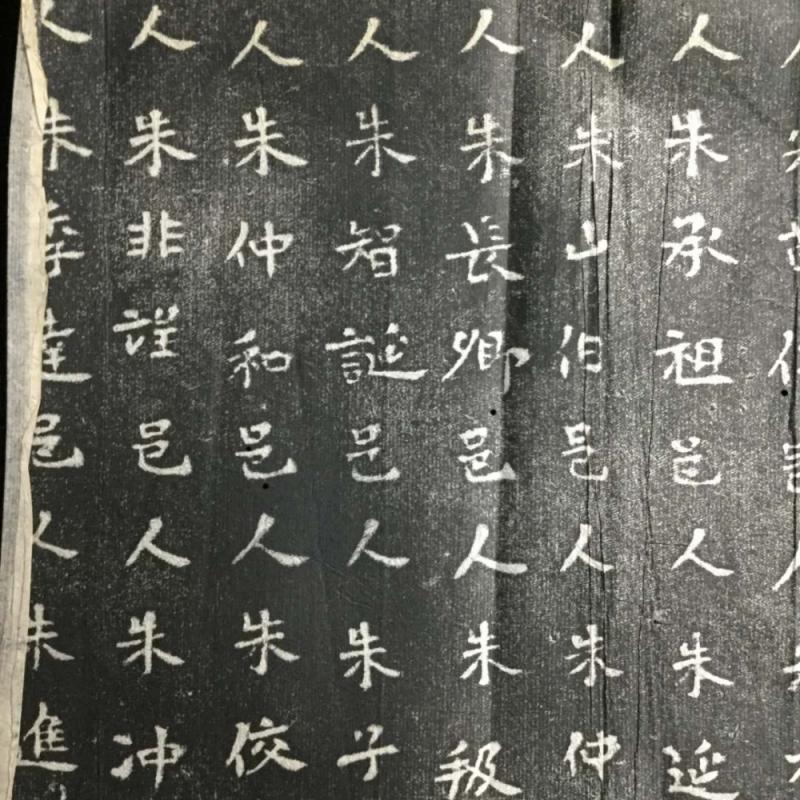 人朱承祖邑人朱延
人朱山伯邑人朱仲
人朱長卿邑人朱級
人朱智誕邑人朱子
人朱仲和邑人朱佼
人朱非誑邑人朱冲
人朱季達邑人朱進